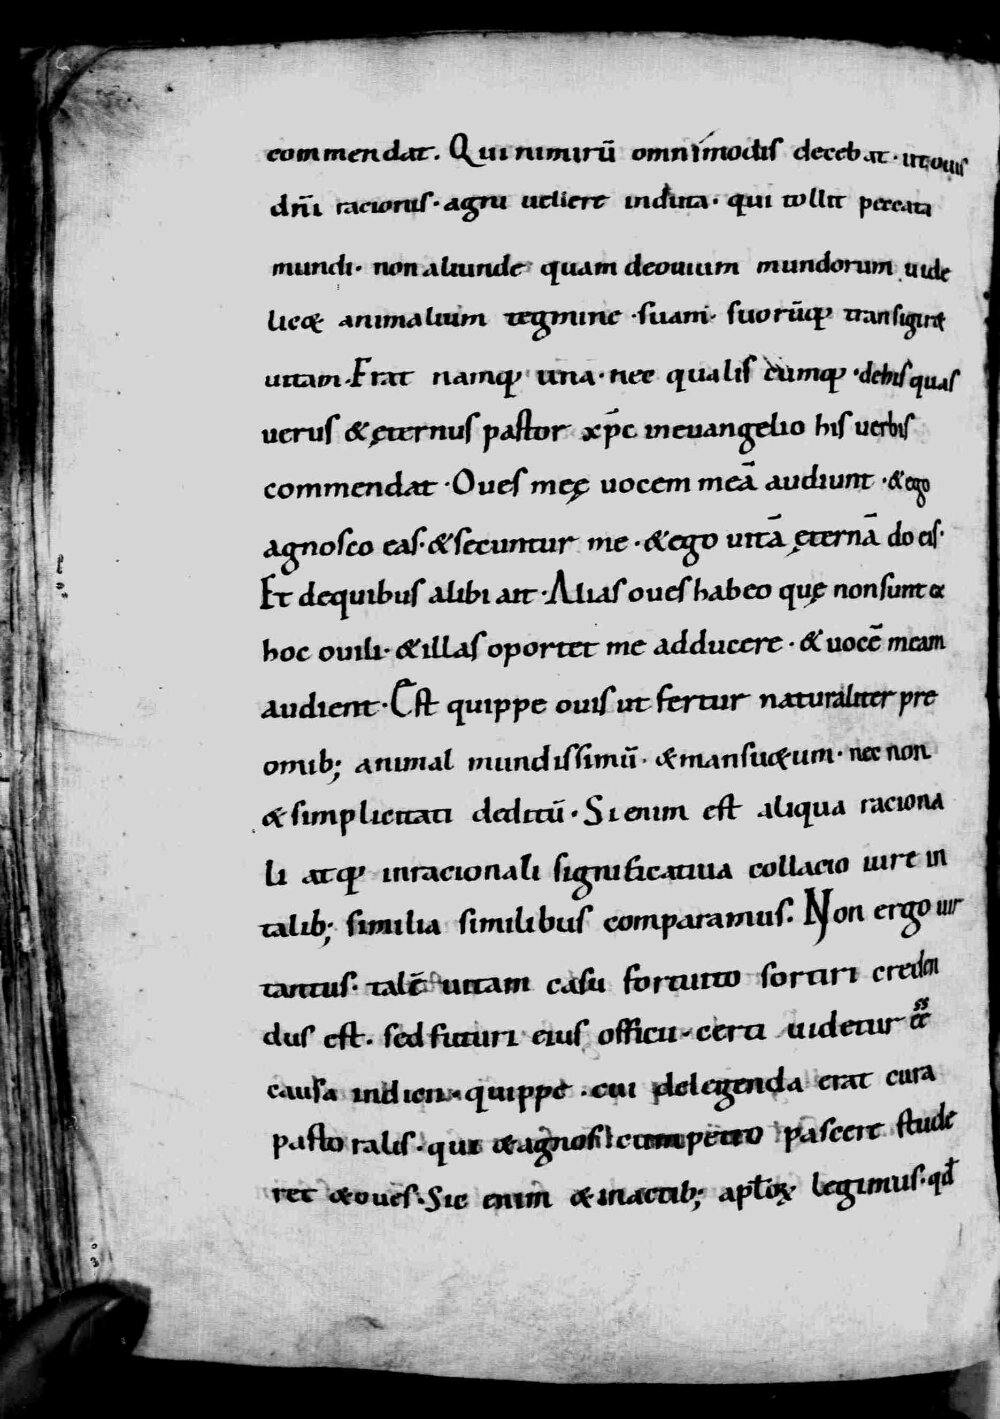 commendat. Qui nimirū omnimodis decebat · ut ouis
dn̄i racionis · agni uellere induta · qui tollit peccata
mundi · non aliunde quam de ouium mundorum uide
licet animalium tegmine · suam · suorūq; transigeret
uitam. Erat namq; una · nec qualiscumq; · de his quas
uerus & ęternus pastor xp̄c in euangelio his uerbis
commendat · Oues meę uocem meā audiunt · & ego
agnosco eas · & secuntur me · & ego uitā ęternā do eis ·
Et de quibus alibi ait · Alias oues habeo quę non sunt ex
hoc ouili · & illas oportet me adducere · & uocē meam
audient · Est quippe ouis ut fertur naturaliter pre
omib; animal mundissimū · & mansuetum · nec non
& simplicitati deditū · Si enim est aliqua raciona
li atq; inracionali significatiua collacio iure in
talib; similia similibus comparamus. Non ergo uir
tantus · talē uitam casu fortuito sortiri creden
dus est · sed futuri eius officii · certa uidetur ēē
causa indicii · quippe · cui delegenda erat cura
pastoralis · qui & agnos cum petro pascere stude
ret & oues · Sic enim & in actib; apl̄oꝝ legimus · qd̄